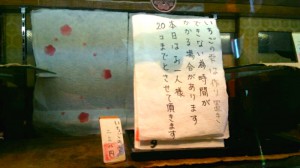 いちごの会は作り置き
できない為時間が
かかる場合があります
本日はお一人様
20コまでとさせて頂きます
いちご